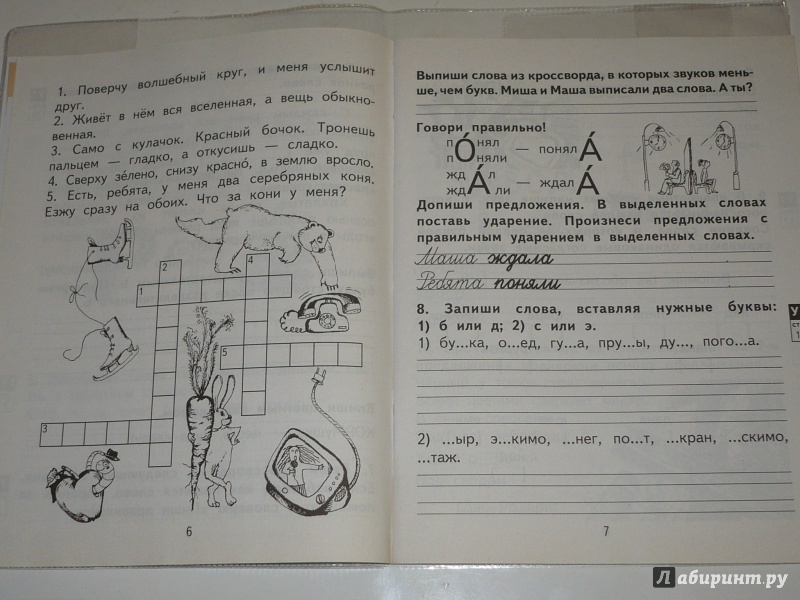 1. Поверчу волшебный круг, и меня услышит
друг.
2. Живёт в нём вся вселенная, а вещь обыкно-
венная.
3. Само с кулачок. Красный бочок. Тронешь
пальцем — гладко, а откусишь — сладко.
4. Сверху зе́лено, снизу красно́, в землю вросло.
5. Есть, ребята, у меня два серебряных коня.
Езжу сразу на обоих. Что за кони у меня?
2
4
1
5
3
6
Выпиши слова из кроссворда, в которых звуков мень-
ше, чем букв. Миша и Маша выписали два слова. А ты?
Говори правильно!
пО́нял — понялА́
пО́няли
ждАл — ждалА́
ждА́ли
Допиши предложения. В выделенных словах
поставь ударение. Произнеси предложения с
правильным ударением в выделенных словах.
Маша ждала
Ребята поняли
8. Запиши слова, вставляя нужные буквы:
1) б или д; 2) с или э.
1) бу...ка, о...ед, гу...а, пру...ы, ду..., пого...а.
2) ...ыр, э...кимо, ...нег, по...т, ...кран, ...скимо,
...таж.
7
У
ст
1
Лабиринт.ру